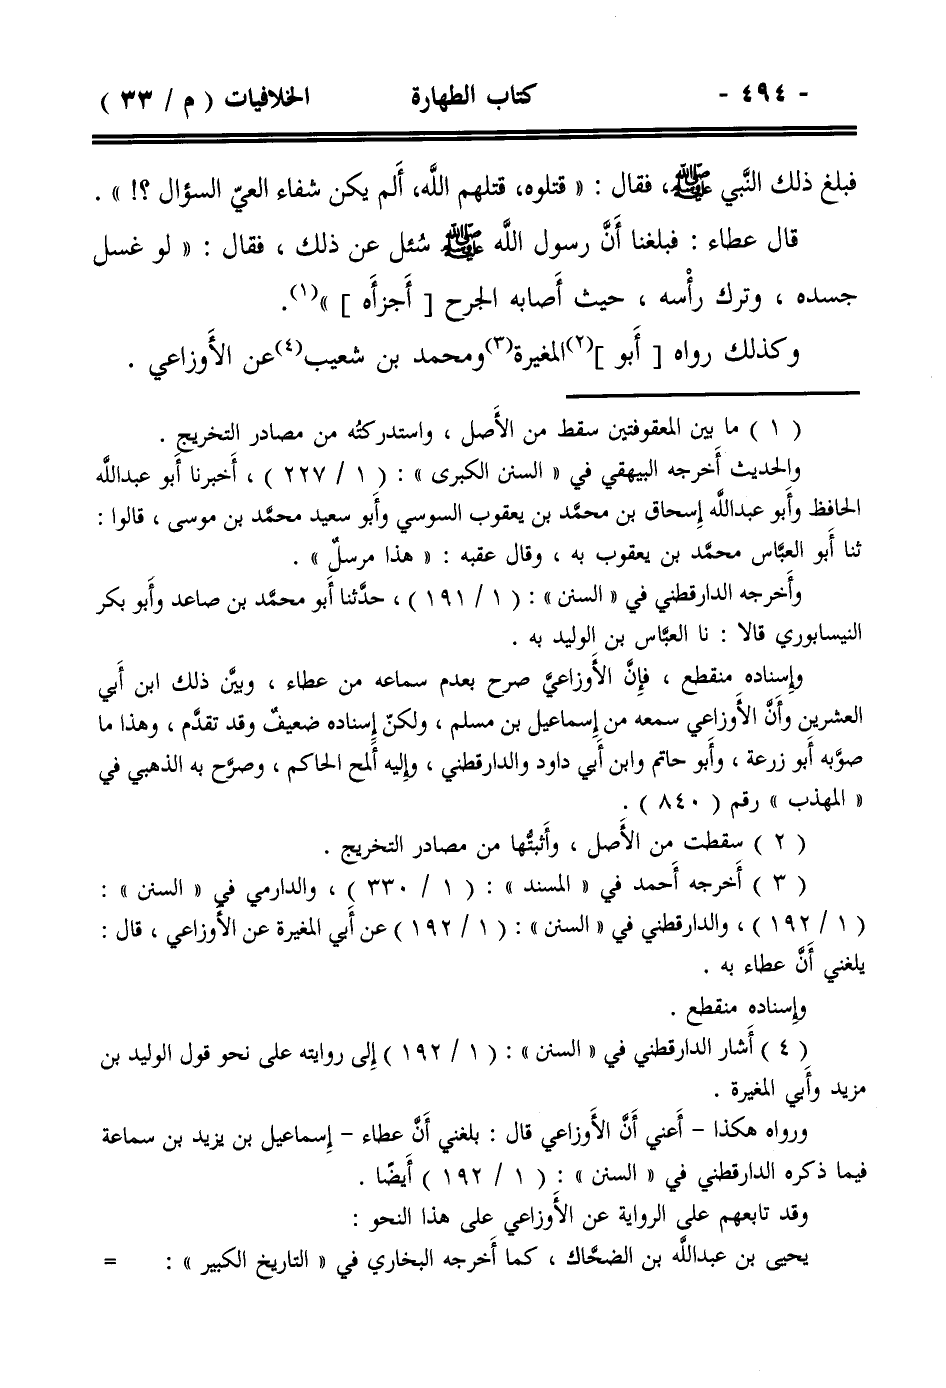 - ٤٩٤ - كتاب الطهارة الخلافيات ( م / ٣٣ )
فبلغ ذلك النَّبي ﷺ، فقال : « قتلوه، قتلهم الله، أَلم يكن شفاء العيّ السؤال ؟! » .
قال عطاء : فبلغنا أَنَّ رسول الله ﷺ سُئل عن ذلك ، فقال : « لو غسل
جسده ، وترك رأْسه ، حيث أَصابه الجرح [ أَجزأَه ] »(١).
وكذلك رواه [ أَبو ](٢)المغيرة(٣)ومحمد بن شعيب(٤)عن الأَوزاعي .
( ١ ) ما بين المعقوفتين سقط من الأَصل ، واستدركتُه من مصادر التخريج .
والحديث أَخرجه البيهقي في « السنن الكبرى » : ( ١ / ٢٢٧ ) ، أَخبرنا أَبو عبدالله
الحافظ وأَبو عبدالله إِسحاق بن محمَّد بن يعقوب السوسي وأَبو سعيد محمَّد بن موسى ، قالوا :
ثنا أَبو العبَّاس محمَّد بن يعقوب به ، وقال عقبه : « هذا مرسلٌ » .
وأَخرجه الدارقطني في « السنن » : ( ١ / ١٩١ ) ، حدَّثنا أَبو محمَّد بن صاعد وأَبو بكر
النيسابوري قالا : نا العبَّاس بن الوليد به .
وإِسناده منقطع ، فإِنَّ الأَوزاعيَّ صرح بعدم سماعه من عطاء ، وبيَّن ذلك ابن أَبي
العشرين وأَنَّ الأَوزاعي سمعه من إِسماعيل بن مسلم ، ولكنّ إِسناده ضعيفٌ وقد تقدَّم ، وهذا ما
صوَّبه أَبو زرعة ، وأَبو حاتم وابن أَبي داود والدارقطني ، وإِليه أَلمح الحاكم ، وصرَّح به الذهبي في
« المهذب » رقم ( ٨٤٠ ) .
( ٢ ) سقطت من الأَصل ، وأَثبتُّها من مصادر التخريج .
( ٣ ) أَخرجه أَحمد في « المسند » : ( ١ / ٣٣٠ ) ، والدارمي في « السنن » :
( ١ / ١٩٢ ) ، والدارقطني في « السنن » : ( ١ / ١٩٢ ) عن أَبي المغيرة عن الأَوزاعي ، قال :
بلغني أَنَّ عطاء به .
وإِسناده منقطع .
( ٤ ) أَشار الدارقطني في « السنن » : ( ١ / ١٩٢ ) إِلى روايته على نحو قول الوليد بن
مزيد وأَبي المغيرة .
ورواه هكذا - أَعني أَنَّ الأَوزاعي قال : بلغني أَنَّ عطاء - إِسماعيل بن يزيد بن سماعة
فيما ذكره الدارقطني في « السنن » : ( ١ / ١٩٢ ) أَيضًا .
وقد تابعهم على الرواية عن الأَوزاعي على هذا النحو :
يحيى بن عبدالله بن الضحَّاك ، كما أَخرجه البخاري في « التاريخ الكبير » : =